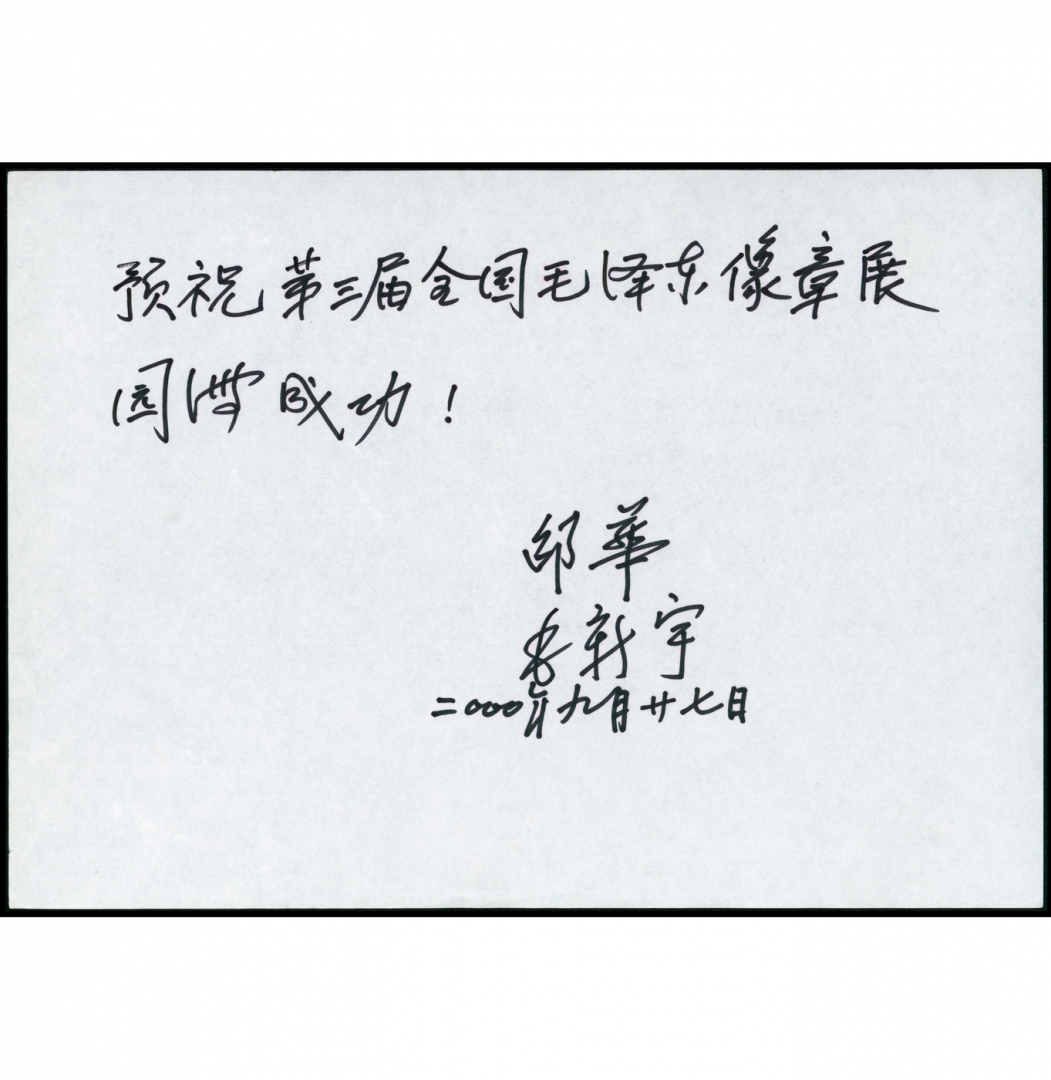 预祝第三届全国毛泽东像章展
圆满成功！
邵华
毛新宇
二000年九月廿七日